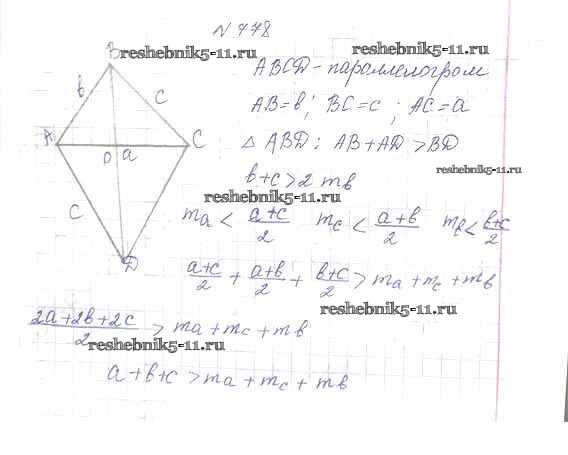 N 778
reshebnik5-11.ru
reshebnik5-11.ru
B
ABCD - параллелограм
b
c
AB=b; BC=c; AC=a
A
O
a
C
△ ABD: AB+AD>BD
reshebnik5-11.ru
b+c>2mb
reshebnik5-11.ru
c
D
ma < (a+c)/2 mc < (a+b)/2 mb < (b+c)/2
(a+c)/2 + (a+b)/2 + (b+c)/2 > ma+mc+mb
reshebnik5-11.ru
(2a+2b+2c)/2 > ma+mc+mb
reshebnik5-11.ru
a+b+c>ma+mc+mb